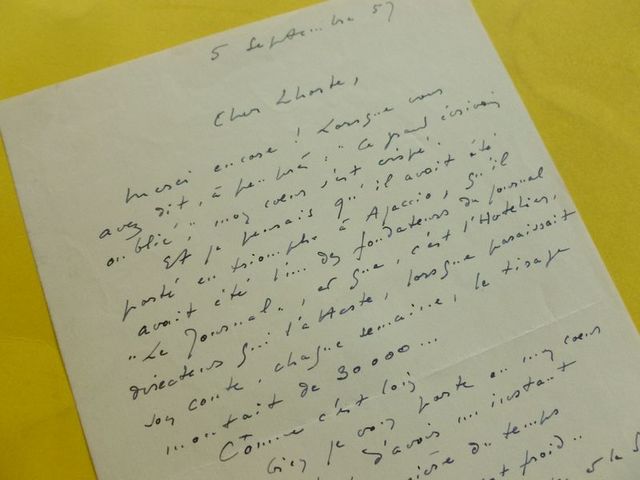 5 Septembre 57
Cher Lhoste,
Merci encore ! Lorsque vous
avez dit, à peu près : "Ce grand écrivain
oublié", mon cœur s'est crispé.
Et je pensais qu'il avait été
porté en triomphe à Ajaccio, qu'il
avait été l'un des fondateurs du journal
"Le Journal", et que, c'est
directeur qui l'atteste, lorsque paraissait
son conte, chaque semaine, le tirage
montait de 30000...
Comme c'est loin
je vous porte en mon cœur
j'avais un instant
du temps
froid..